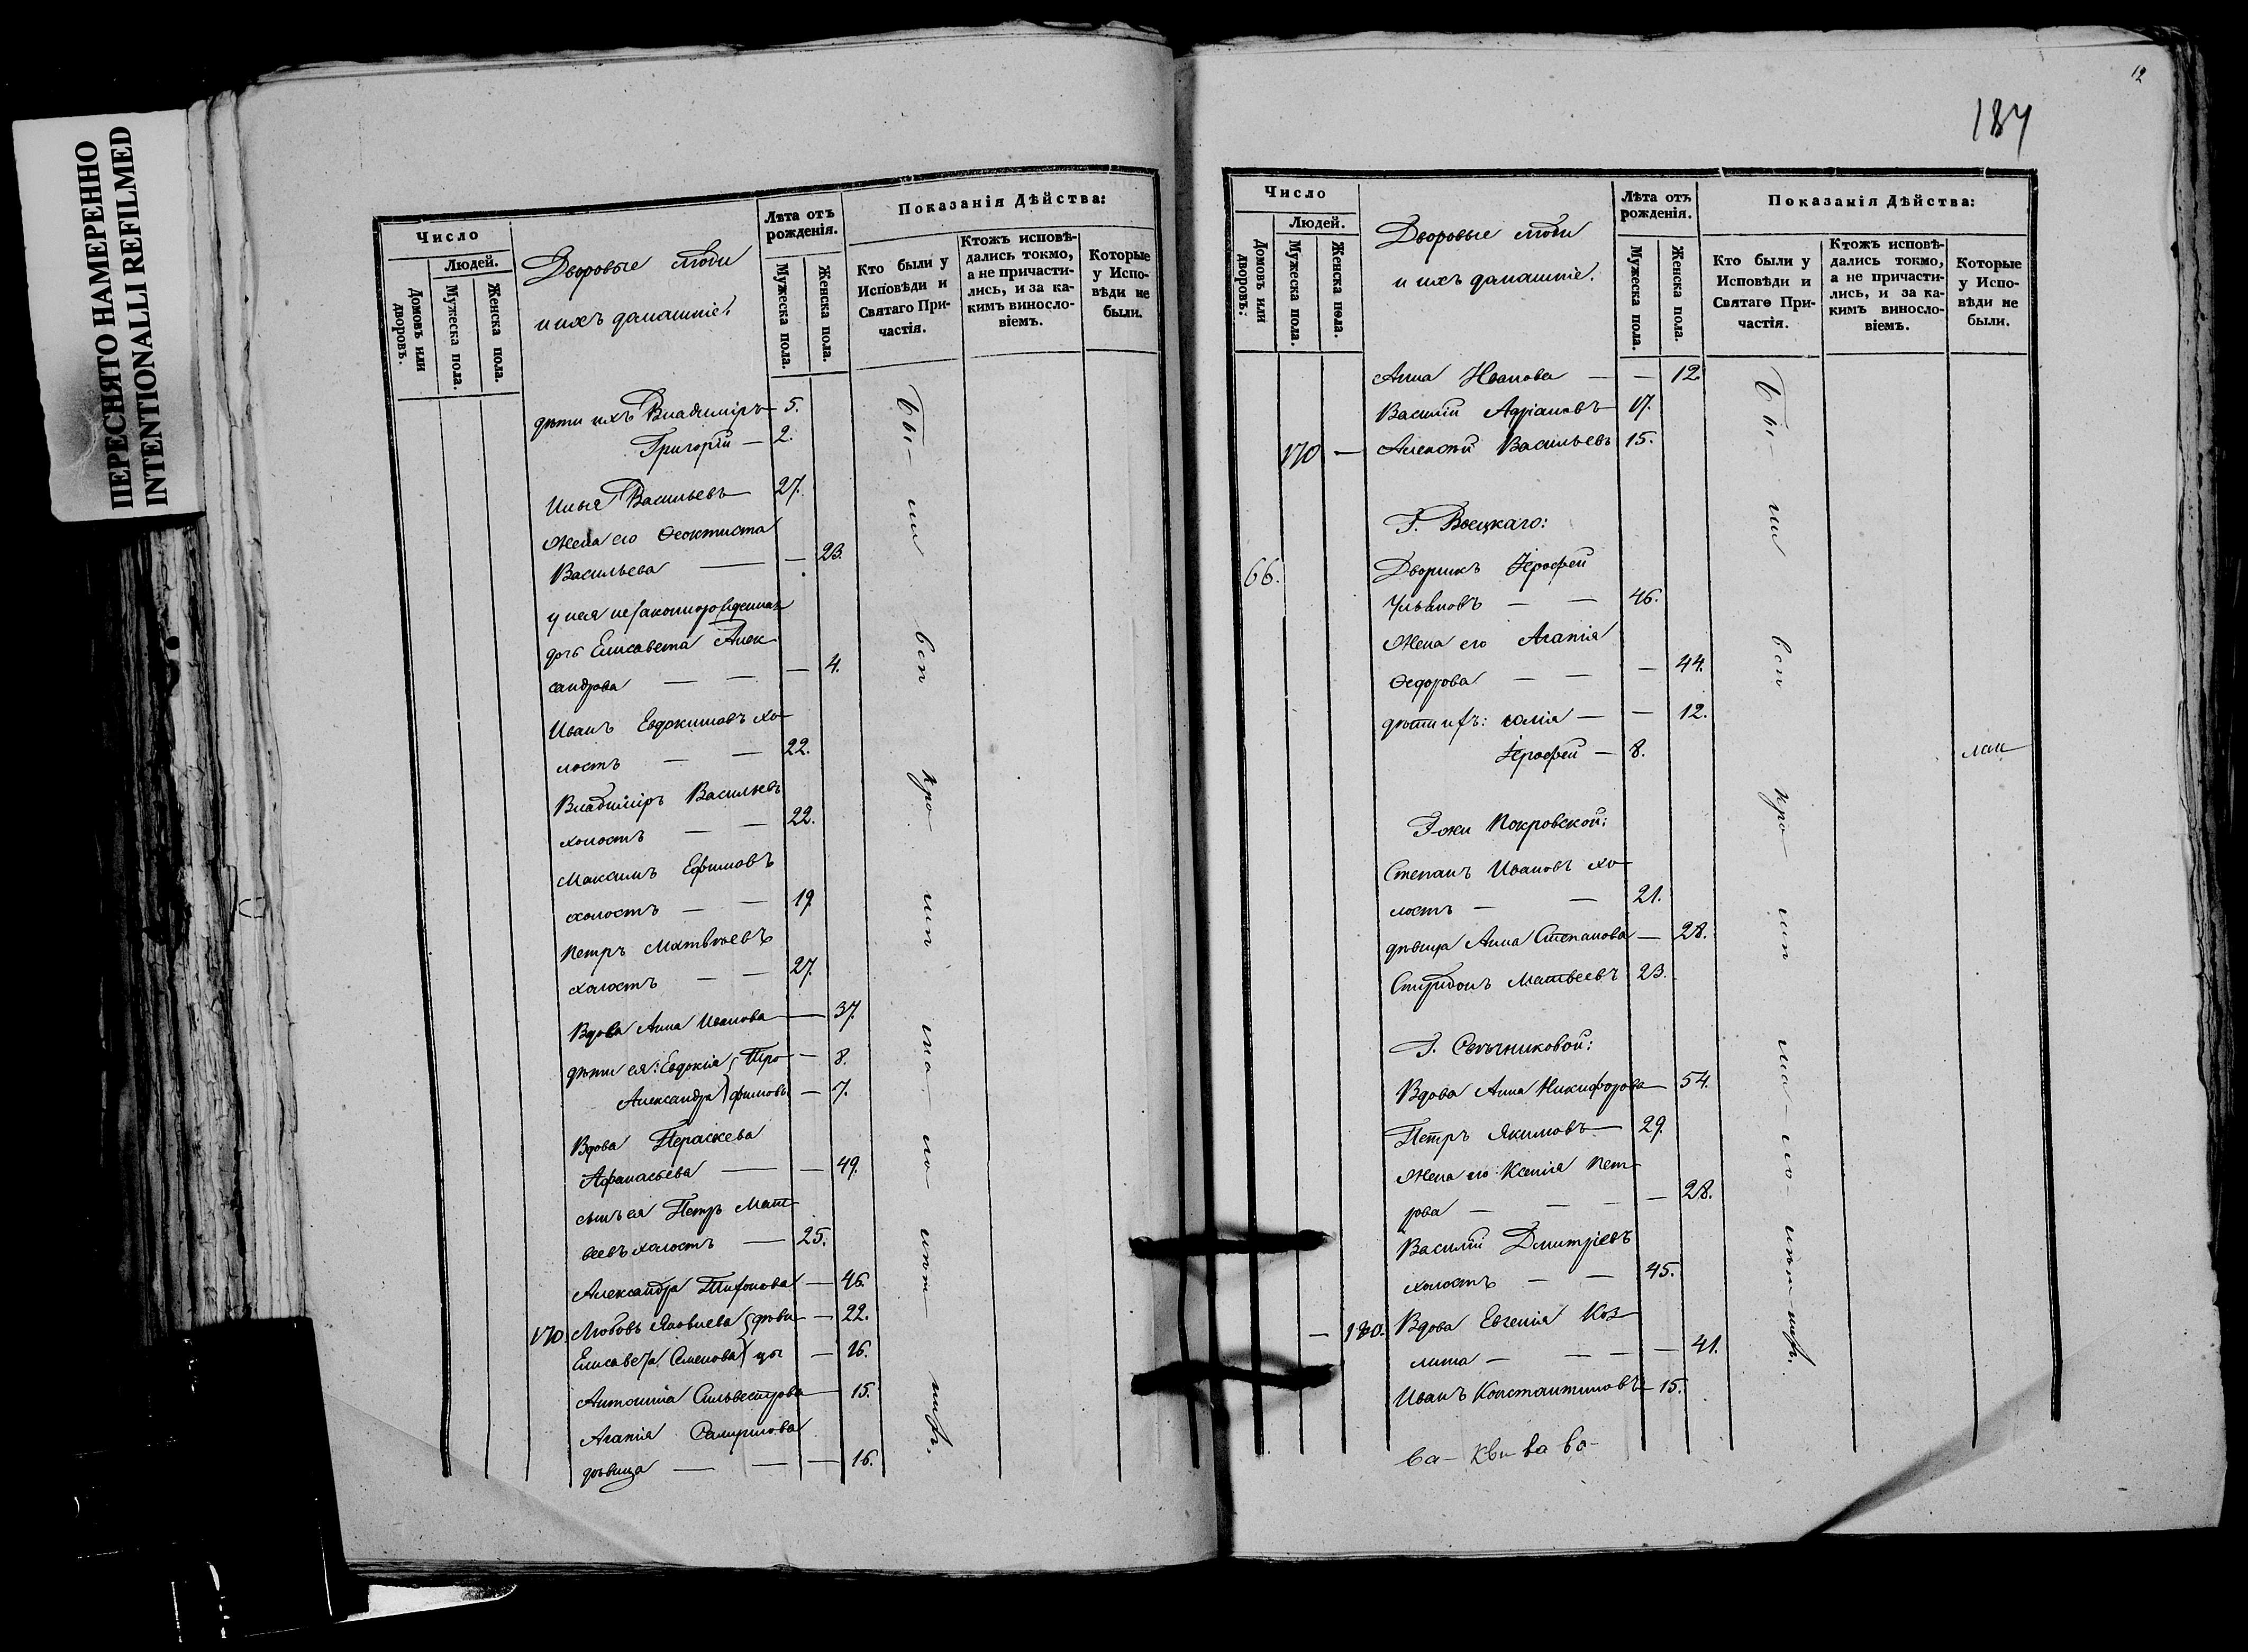 ПЕРЕСНЯТО НАМЕРЕННО
INTENTIONALLI REFILMED
Число
Людей.
Домовъ или дворовъ.
Мужеска пола.
Женска пола.
Дворовые люди
и ихъ домашніе:
Лѣта отъ рожденія.
Мужеска пола.
Женска пола.
Показанія Дѣйства:
Кто были у Исповѣди и Святаго Причастія.
Ктожъ исповѣдались токмо, а не причастились, и за какимъ винословіемъ.
Которые у Исповѣди не были.
дѣти ихъ Владиміръ 5.
Григорій — 2.
Илья Васильевъ 27.
Жена его Ѳеоктиста
Васильева — — 23.
у нея незаконнорожденная
дочь Елисавета Алек
сандрова — — — 4.
Иванъ Евдокимовъ хо-
лостъ — — 22.
Владиміръ Васильевъ
холостъ — — 22.
Максимъ Ефимовъ
холостъ — — 19.
Петръ Матвѣевъ
холостъ — — 27.
Вдова Анна Иванова — 37.
дѣти ея: Евдокія Тро- — 8.
Александра фимовы — 7.
Вдова Параскева
Афанасьева — — 49.
сынъ ея Петръ Мат-
веевъ холостъ — 25.
Александра Тихонова — 46.
170. Любовь Яковлева дѣви — 22.
Елисавета Семенова цы — 26.
Антонина Сильвестрова 15.
Агапія
дѣвица — — — 16.
Бы- ли
вси
про-
мно-
12
184
Число
Людей.
Домовъ или дворовъ:
Мужеска пола.
Женска пола.
Дворовые люди
и ихъ домашніе.
Лѣта отъ рожденія.
Мужеска пола.
Женска пола.
Показанія Дѣйства:
Кто были у Исповѣди и Святаго Причастія.
Ктожъ исповѣдались токмо, а не причастились, и за какимъ винословіемъ.
Которые у Исповѣди не были.
Анна Иванова — — 12
Василій Адріановъ 17.
170 — Алексѣй Васильевъ 15.
Г. Высцкаго:
66. Дворникъ Іерофей
Ульяновъ — — 46.
Жена его Агапія
Ѳедорова — — — 44.
дѣти ихъ: Юлія — — 12.
Іерофей — 8.
мал
Г-жи Покровской:
Степанъ Ивановъ хо-
лостъ — — 21.
дѣвица Анна Степанова — 28.
Спиридонъ Матвеевъ 23.
Г. Свѣчниковой:
Вдова Анна Никифорова 54.
Петръ Якимовъ 29.
Жена его Ксенія Пет-
рова — — — — 28.
Василій Дмитріевъ
холостъ — — 45.
— 180. Вдова Евгенія Коз-
мина — — — — 41.
Иванъ Константиновъ 15.
Бы- ли
вси
про-